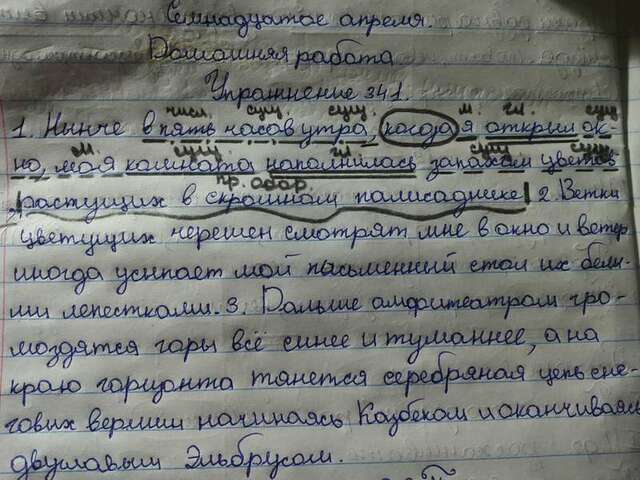 Семнадцатое апреля.
Домашняя работа
Упражнение 341.
числ. сущ. сущ. м. гл. сущ
1. Нынче в пять часов утра, когда я открыл ок-
м. сущ. гл сущ сущ
но, моя комната наполнилась запахом цветов
пр. обор.
, растущих в скромном палисаднике 2. Ветки
цветущих черешен смотрят мне в окно и ветер
иногда усыпает мой письменный стол их белы-
ми лепестками. 3. Дальше амфитеатром гро-
моздятся горы всё синее и туманнее, а на
краю горизонта тянется серебряная цепь сне-
говых вершин начинаясь Казбеком и оканчиваясь
двуглавым Эльбрусом.